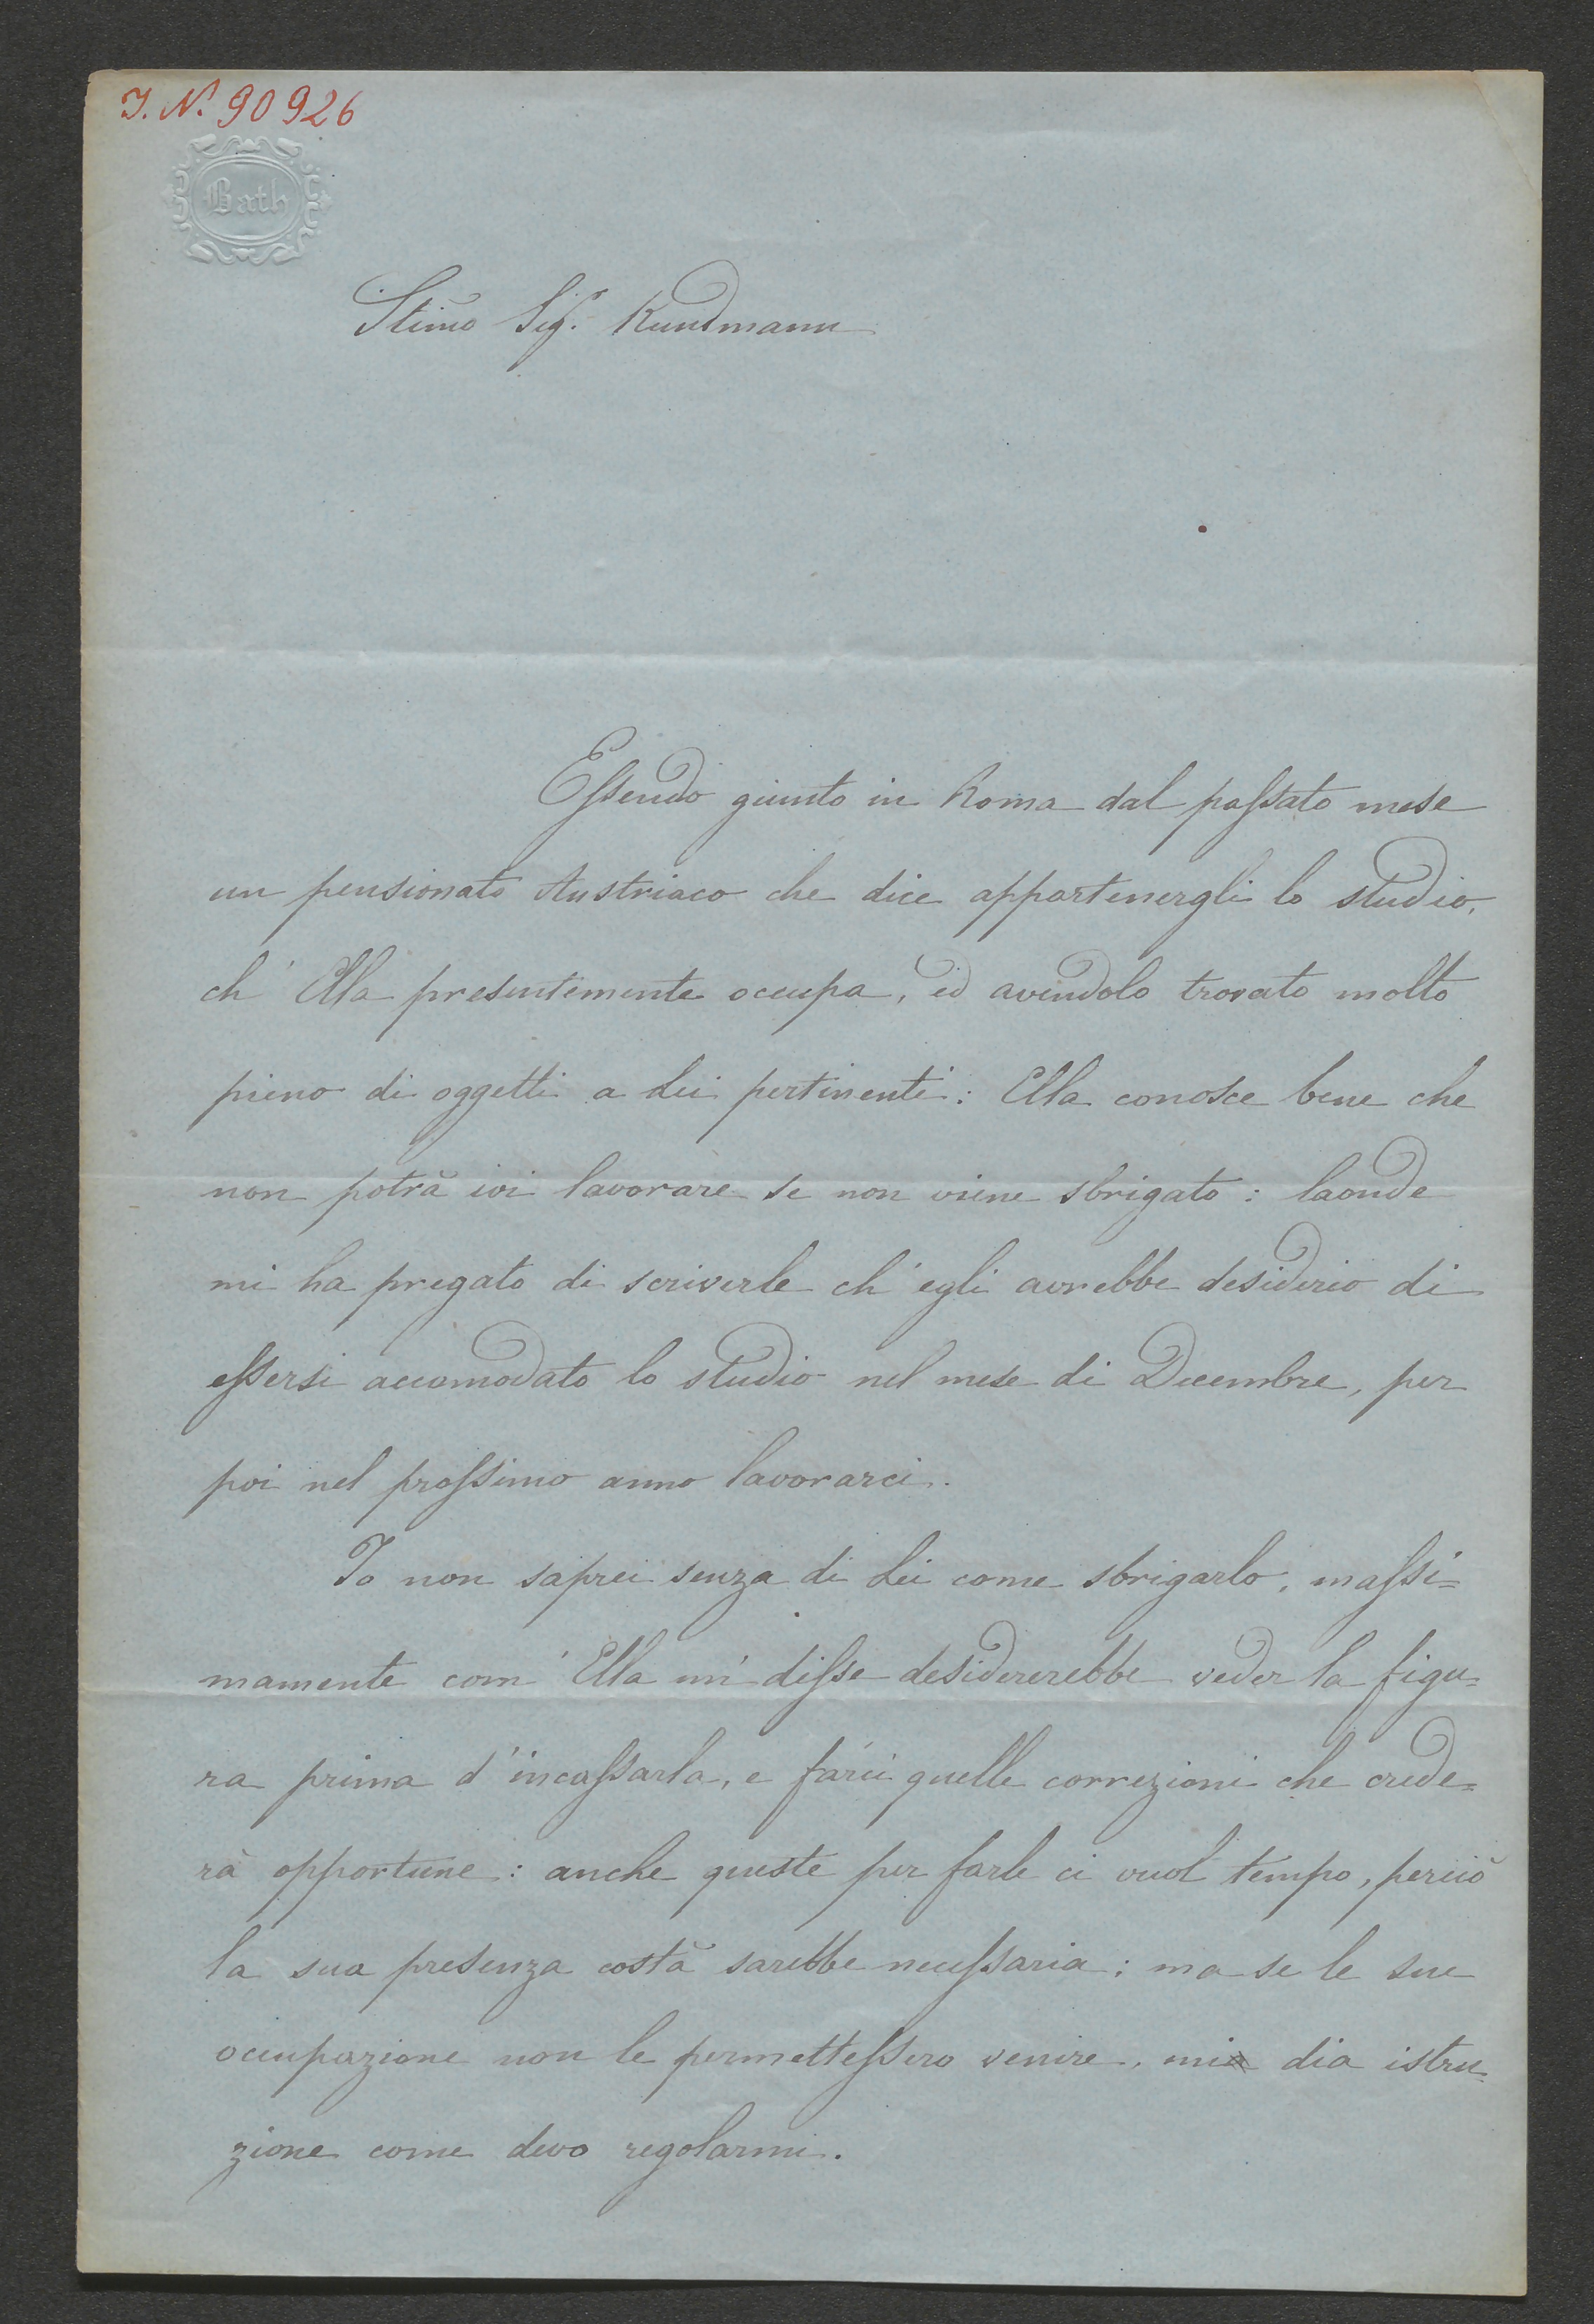 I. N. 90926
Bath
Stimo Sig.r Kundmann
Essendo giunto in Roma dal passato mese
un pensionato Austriaco che dice appartenergli lo studio,
ch' Ella presentemente occupa, ed avendolo trovato molto
pieno di oggetti a Lei pertinenti: Ella conosce bene che
non potrà ivi lavorare se non viene sbrigato: laonde
mi ha pregato di scriverle ch' egli avrebbe desiderio di
essersi accomodato lo studio nel mese di Decembre, per
poi nel prossimo anno lavorarci.
Io non saprei senza di Lei come sbrigarlo, massi=
mamente com' Ella mi disse desidererebbe veder la figu=
ra prima d'incassarla, e farci quelle correzioni che crede=
rà opportune: anche queste per farle ci vuol tempo, perciò
la sua presenza costà sarebbe necessaria: ma se le sue
occupazione non le permettessero venire, mi dia istru=
zione come devo regolarmi.